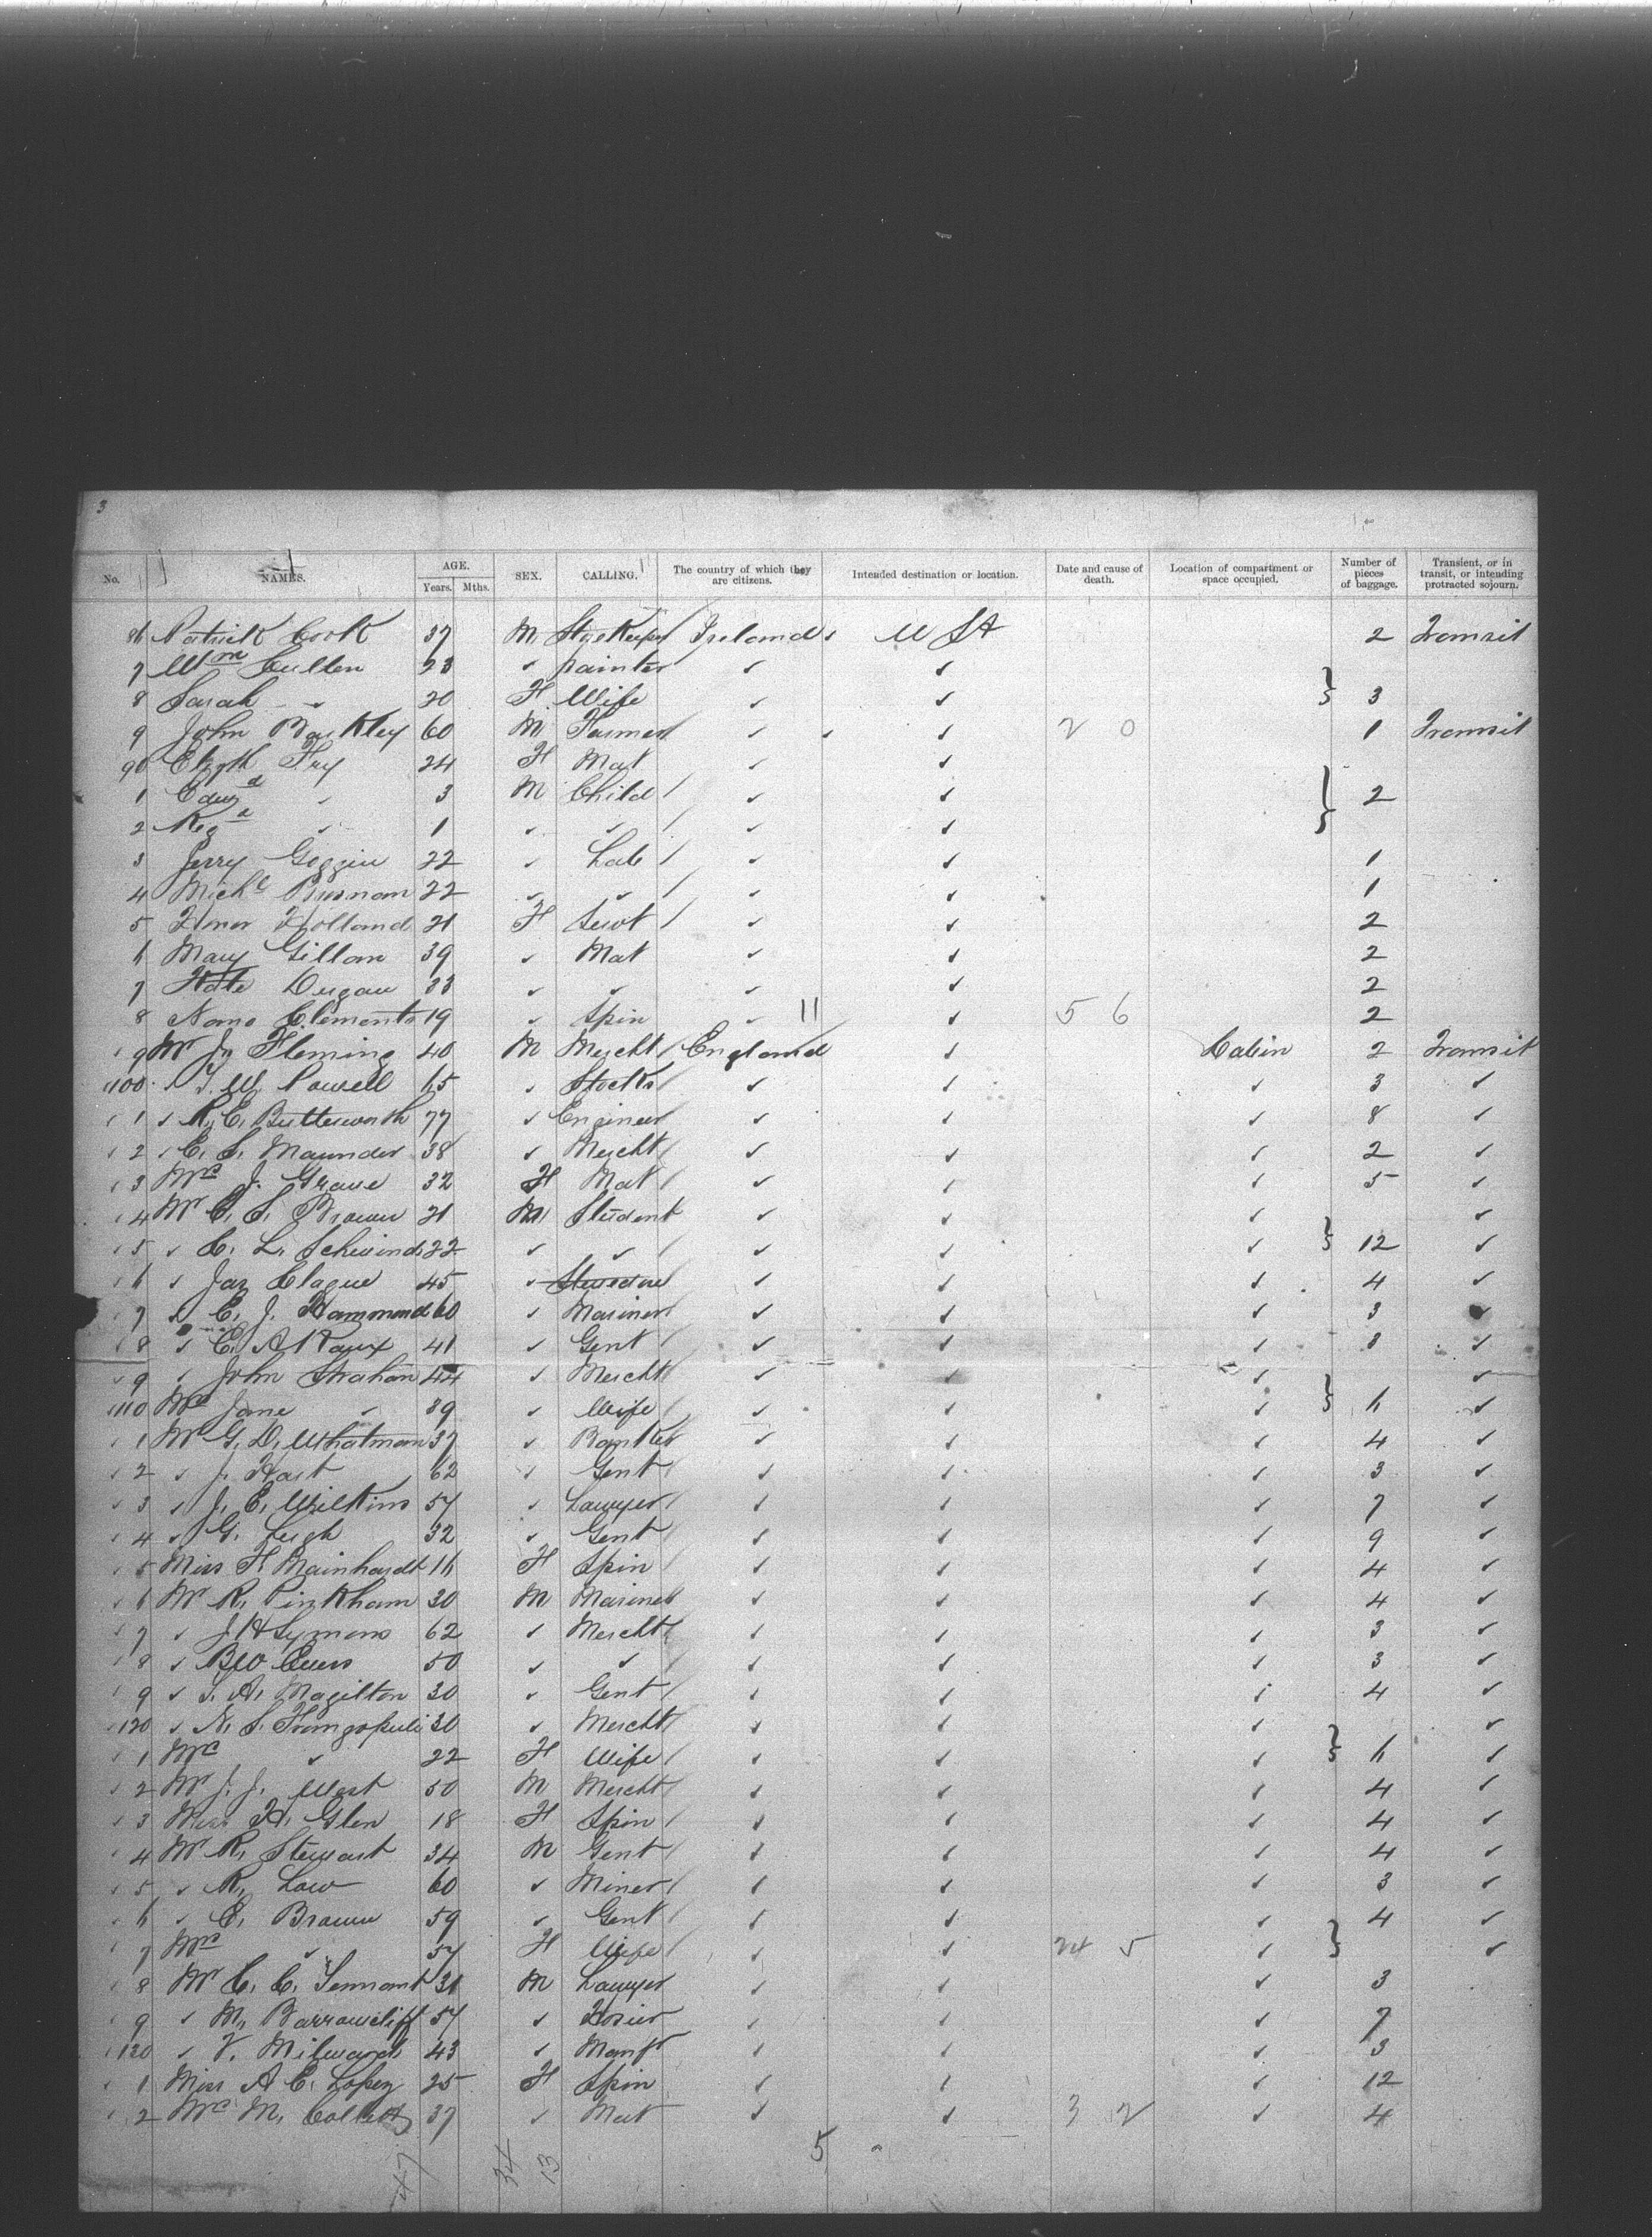 3
No. NAMES. AGE. Years. Mths. SEX. CALLING. The country of which they are citizens. Intended destination or location. Date and cause of death. Location of compartment or space occupied. Number of pieces of baggage. Transient, or in transit, or intending protracted sojourn.
86 Patrick Cook 37 M Storekeeper Ireland U St 2 Transit
7 Wm Cullen 23 " painter " "
8 Sarah " 20 F Wife " " } 3
9 John Barkley 60 M Farmer " " 2 0 1 Transit
90 Elizth Fry 24 F Mat " "
1 Edwd " 3 M Child " " } 2
2 Regd " 1 " " " "
3 Jerry Goggin 22 " Lab " " 1
4 Michl Brosnan 22 " " " " 1
5 Honor Holland 21 F Servt " " 2
6 Mary Gillan 39 " Mat " " 2
7 Kate Durgan 33 " " " " 2
8 Nano Clements 19 " Spin " 11 " 5 6 2
9 Mr Jn Fleming 40 M Mercht England " Cabin 2 Transit
100 " T. W. Powell 65 " " " " 3 "
1 " R. C. Butterworth 77 " Engineer " " " 8 "
2 " C. S. Maunder 38 " Mercht " " " 2 "
3 Mrs J. Grave 32 F Mat " " " 5 "
4 Mr C. S. Brown 21 M Student " " " "
5 " C. L. Schwind 22 " " " " " } 12 "
6 " Jas Clague 45 " Stevedore " " " 4 "
7 " C. J. Hammond 60 " Mariner " " " 3 "
8 " C. A. Raux 41 " Gent " " " 3 "
9 " John Strahan 44 " Mercht " " " "
110 Mrs Jane " 39 " Wife " " " } 6 "
1 Mr G. D. Whatman 37 " Banker " " " 4 "
2 " J. Hart 62 " Gent " " " 3 "
3 " J. E. Wilkins 57 " Lawyer " " " 7 "
4 " G. Leigh 32 " Gent " " " 9 "
5 Miss F. Mainhardt 16 F Spin " " " 4 "
6 Mr R. Pinkham 30 M Mariner " " " 4 "
7 " J H Symons 62 " Mercht " " " 3 "
8 " 50 " " " " " 3 "
9 " T. A. Magilton 30 " Gent " " " 4 "
120 " N. S. 30 " Mercht " " " "
1 Mrs " 22 F Wife " " " } 6 "
2 Mr J. J. West 50 M Mercht " " " 4 "
3 Miss H. Glen 18 F Spin " " " 4 "
4 Mr R. Stewart 34 M Gent " " " 4 "
5 " R. Law 60 " Miner " " " 3 "
6 " C. Brown 59 " Gent " " " 4 "
7 Mrs " 57 F Wife " " 24 5 " } "
8 Mr C. C. Tennant 31 M Lawyer " " " 3
9 " M. Barrowcliff 57 " Hosier " " " 7
130 " V. Milward 43 " Manfr " " " 3
1 Miss A C. Lopez 25 F Spin " " " 12
2 Mrs M. 37 " Mat " " 3 2 " 4
47 34 13 5